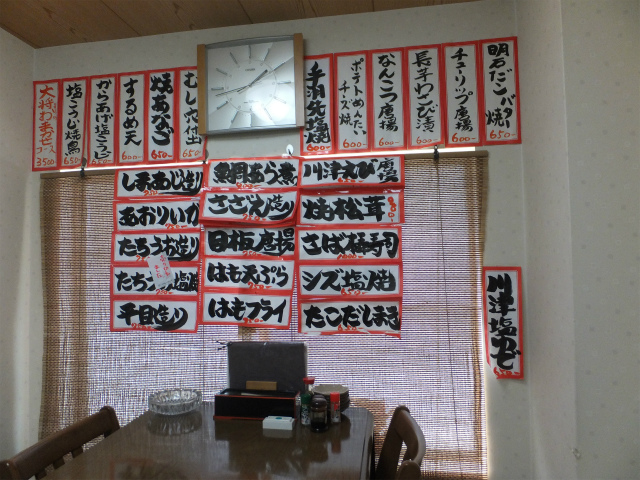 大将おまかせコース
3500
塩こうじ焼鳥
650-
からあげ塩こうじ
650-
するめ天
600-
焼あなご
650-
むし穴付出
650
手羽先焼
600-
ポテトめんたいチーズ焼
600-
なんこつ唐揚
600-
長芋わさび漬
600-
チューリップ唐揚
650-
明石ダコバター焼
650-
しまあじ造り
あおりいか
たちうお造り
たちうお塩焼
平目造り
黒岡あら煮
さざえ造り
目板唐揚
はも天ぷら
はもフライ
川津えび唐揚
焼松茸
さば棒寿司
シズ塩焼
たこだしまき
川津塩ゆで